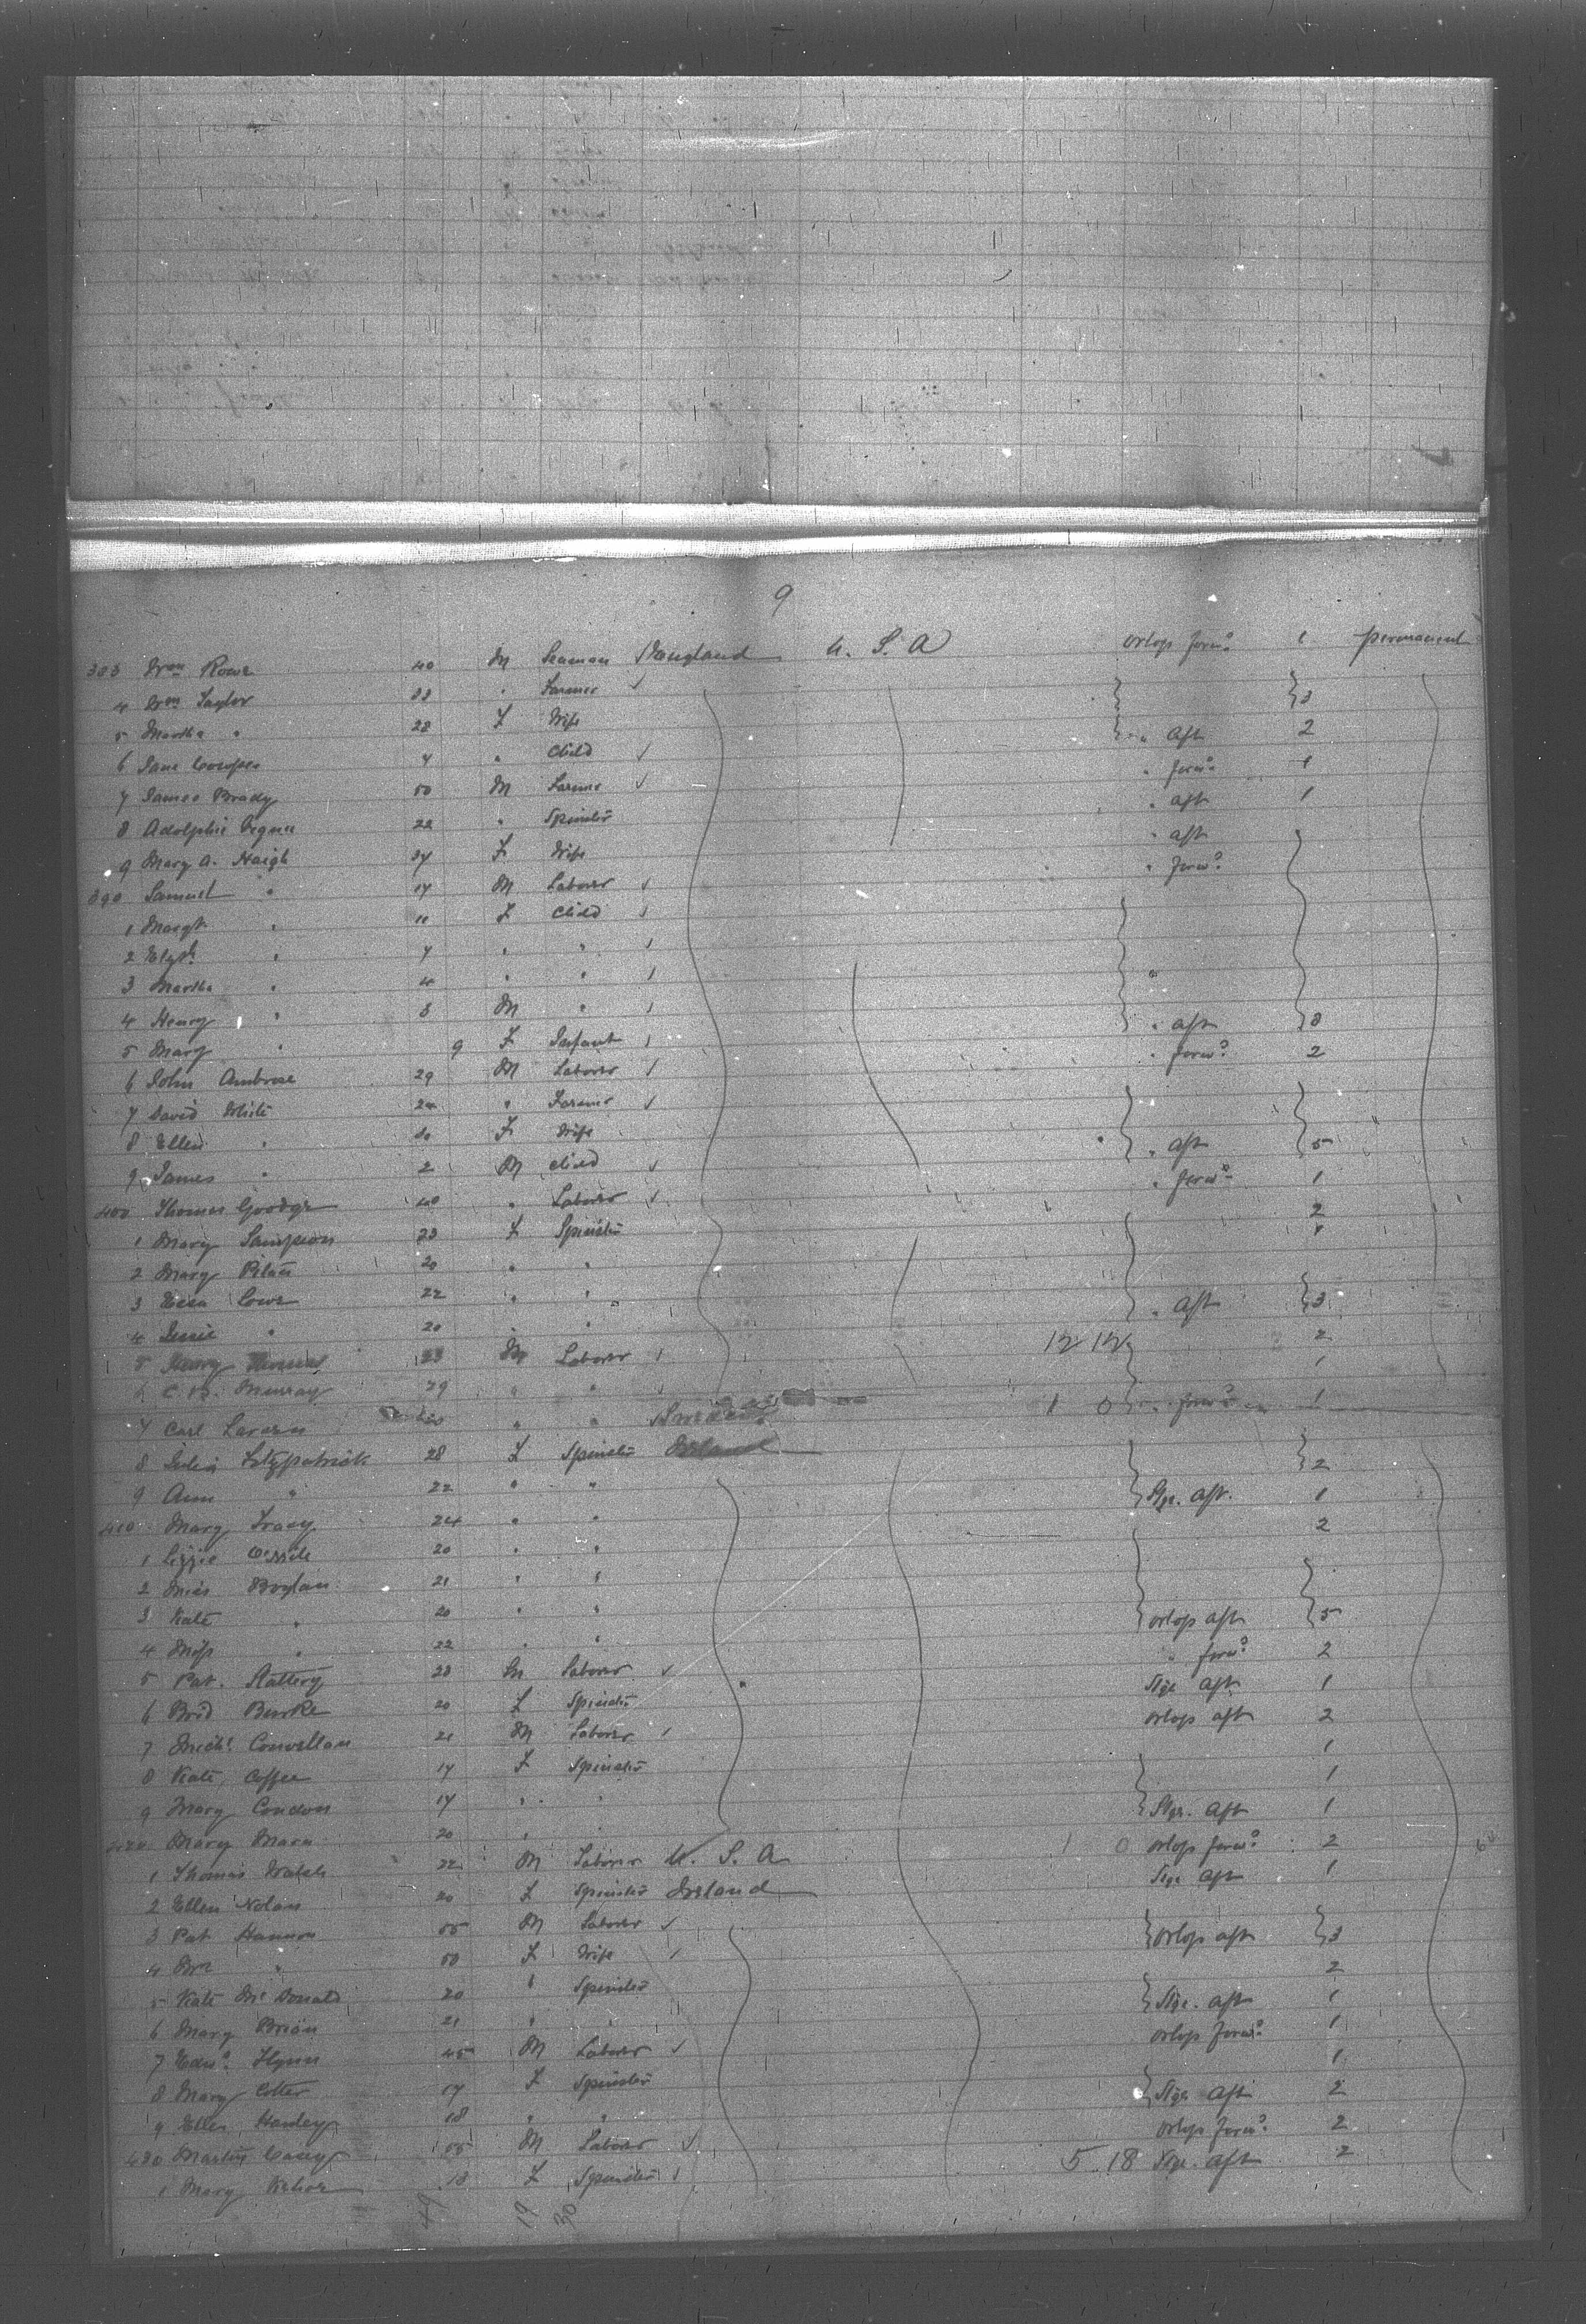 9
383 Wm Rowe 40 M Seaman England U. S. A Orlop forwd 1 permanent
4 Wm Taylor 33 " Farmer
5 Martha " 28 F Wife 3
6 Jane Cowper 4 " Child " Aft 2
7 James Brady 50 M Farmer " forwd 1
8 Adolphie 22 " Spinster " aft 1
9 Mary A. Haigh 37 F Wife " aft
390 Samuel " 17 M Laborer " forwd
1 Margt " 11 F Child
2 Elizth " 7 " "
3 Martha " 4 " " "
4 Henry " 3 M "
5 Mary " 9 F Infant " aft 8
6 John Ambrose 29 M Laborer " forwd 2
7 David White 24 " Farmer
8 Ellen " F Wife
9 James " 2 M Child " aft 5
400 Thomas 40 " Laborer " forwd 1
1 Mary Sampson 23 F Spinster 2
2 Mary 20 " " 1
3 Lowe 22 " "
4 Jessie " 20 " " " Aft 3
5 Henry Thomas 23 M Laborer 12 12 2
6 Murray 29 " " 1
7 Carl 20 " " Sweden 1 0 " forwd 1
8 Julia Fitzpatrick 28 F Spinster Ireland
9 Ann " 22 " " 2
410 Mary Tracy 24 " " Stge. aft. 1
1 Lizzie 20 " " 2
2 Boylan 21 " "
3 Kate " 20 " "
4 " 22 " " Orlop aft 5
5 Pat. Slattery 28 M Laborer " forwd 2
6 Brid Burke 20 F Spinster Stge aft 1
7 Michl Connellan 21 M Laborer Orlop aft 2
8 Kate Coffee 17 F Spinster 1
9 Mary Condon 17 " " 1
420 Mary Mara 20 " " Stge. aft 1
1 Thomas Walsh 22 M Laborer U. S. A 1 0 Orlop forwd 2
2 Ellen Nolan 20 F Spinster Ireland Stge aft 1
3 Pat Hannon 55 M Laborer
4 Mrs " 50 F Wife Orlop aft 3
5 Kate McDonald 20 " Spinster 2
6 Mary Brian 21 " " Stge. aft 1
7 Edwd Flynn 45 M Laborer Orlop forwd 1
8 Mary Cotter 17 F Spinster 1
9 Ellen 18 " " Stge aft 2
430 Martin Casey 55 M Laborer Orlop forwd 2
1 Mary Kehoe 18 F Spinster 5 18 Stge. aft 2
49 19 30